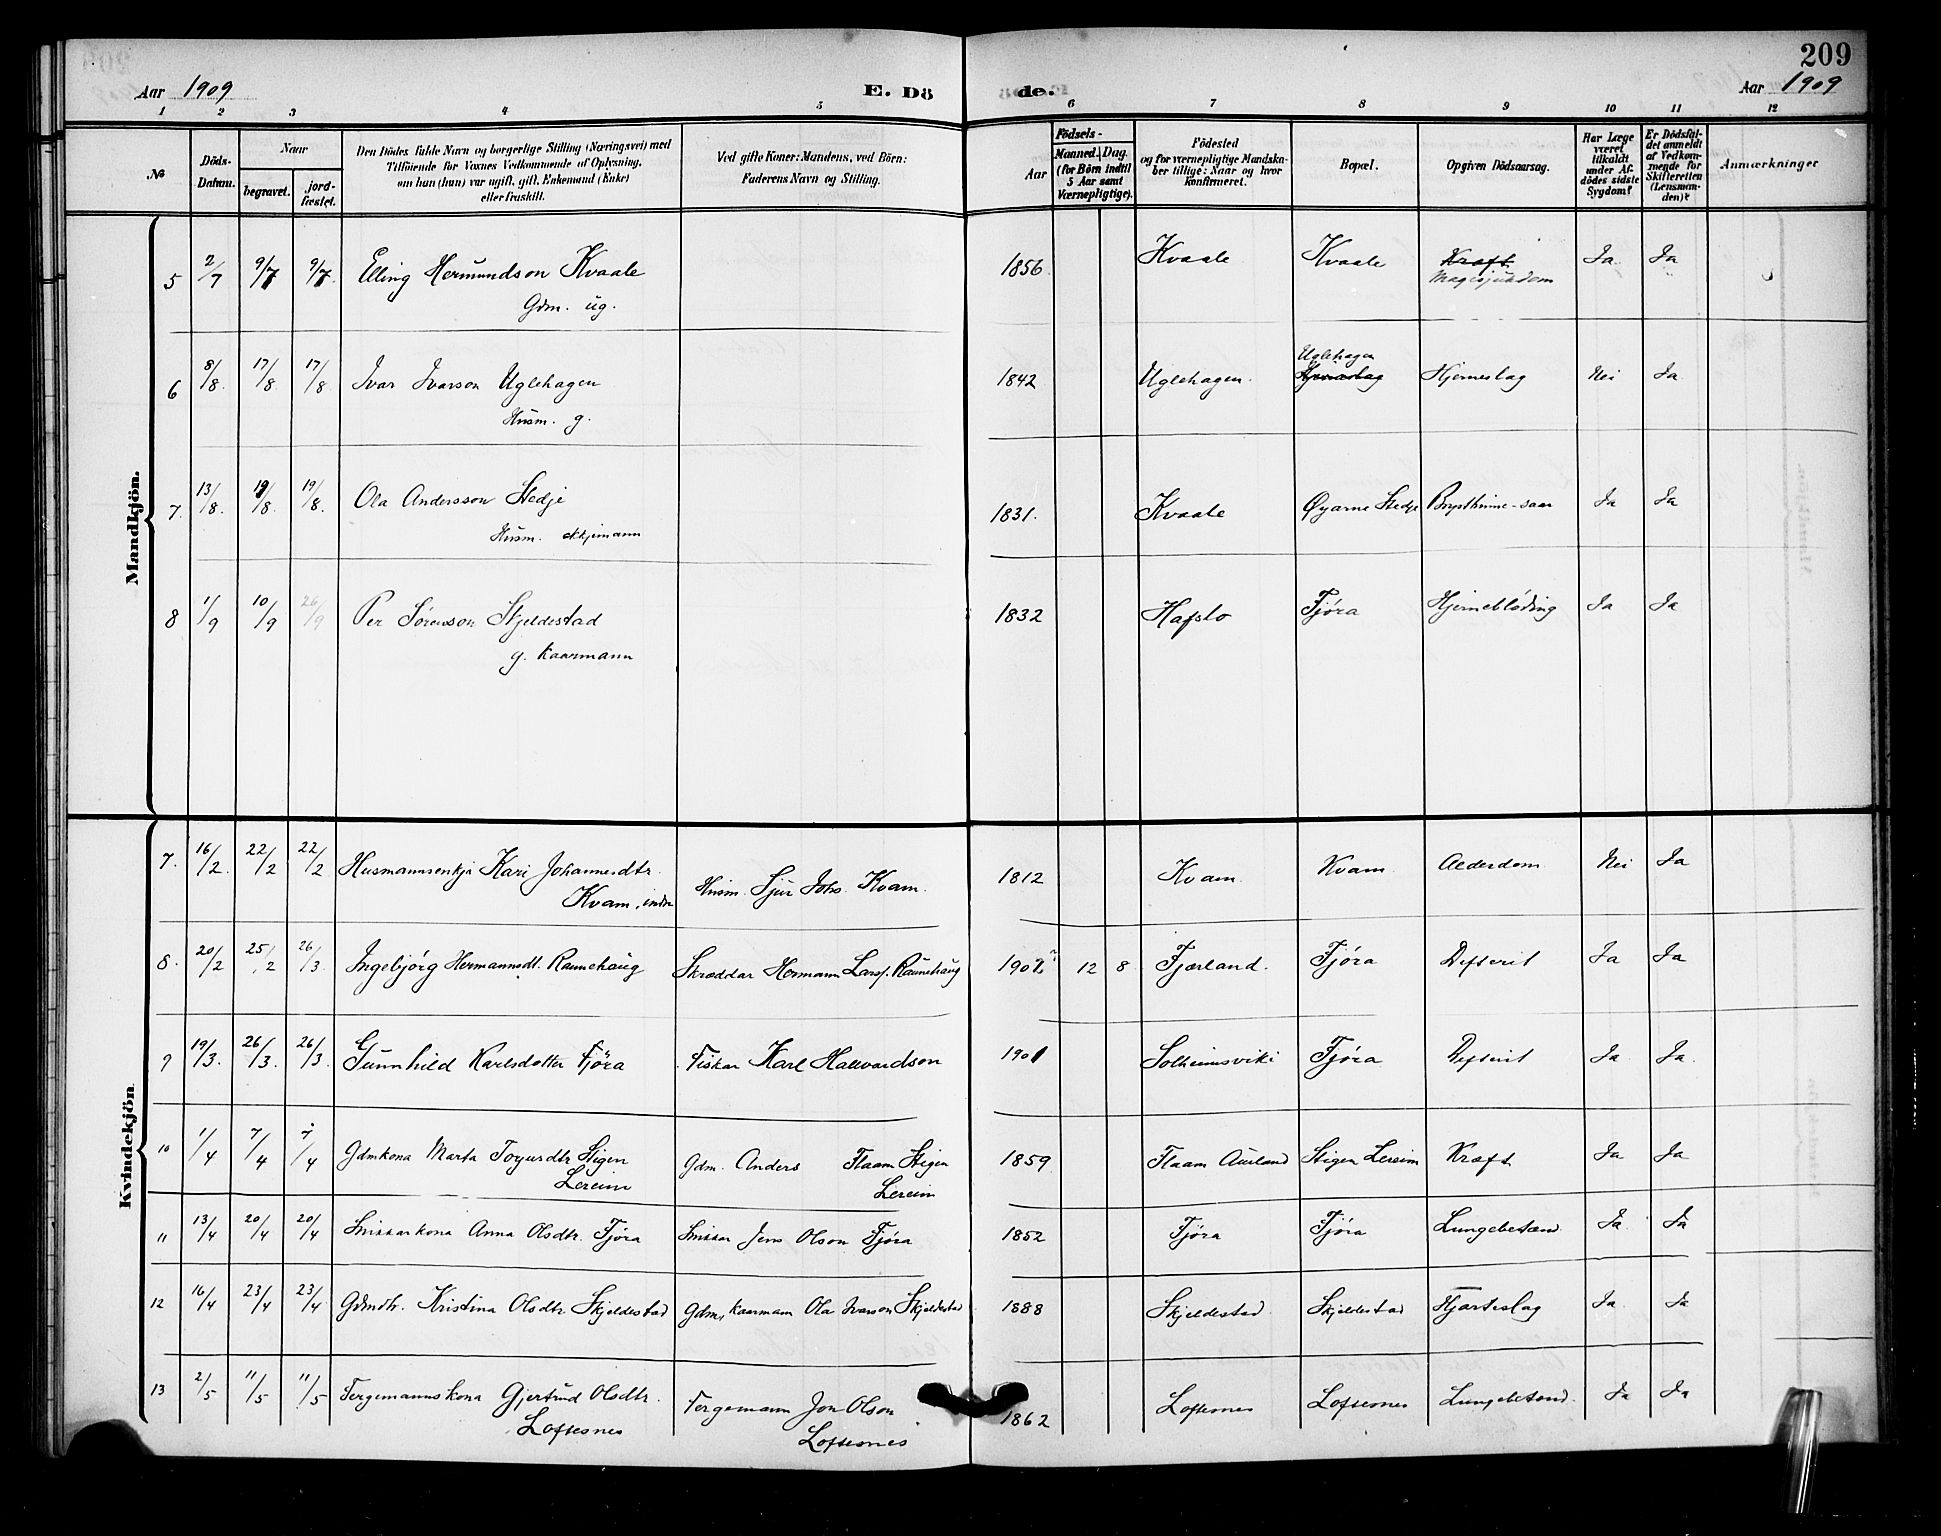 209
Aar 1909 E. Dö de. Aar 1909
1 2 3 4 5 6 7 8 9 10 11 12
№
Döds-Datum.
Naar
begravet.
jord-fæstet.
Den Dödes fulde Navn og borgerlige Stilling (Næringsvei) med
Tilföiende for Voxnes Vedkommende af Oplysning,
om han (hun) var ugift, gift, Enkemand (Enke)
eller fraskilt.
Ved gifte Koner: Mandens, ved Börn:
Faderens Navn og Stilling.
Födsels-
Aar
Maaned. Dag.
(for Börn indtil
5 Aar samt
Værnepligtige).
Födested
og for værnepligtige Mandska-
ber tillige: Naar og hvor
Konfirmeret.
Bopæl.
Opgiven Dödsaarsag.
Har Læge
været
tilkaldt
under Af-
dödes sidste
Sygdom?
Er Dödsfal-
det anmeldt
af Vedkom-
mende for
Skifteretten
(Lensman-
den)?
Anmærkninger
Mandkjön.
5 2/7 9/7 9/7 Elling Hermundson Kvaale 1856 Kvaale Kvaale Kræft Ja Ja
Gdm. ug. Magesjukdom
6 8/8 17/8 17/8 Ivar Ivarson Uglehagen 1842 Uglehagen Uglehagen Hjerneslag Nei Ja
Husm. g.
7 13/8 19/8 19/8 Ola Andersson Stedje 1831 Kvaale Øyarne Stedje Ja Ja
Husm. ekkjemann
8 1/9 10/9 26/9 Per Sørensson Skjeldestad 1832 Hafslo Fjøra Hjerneblöding Ja Ja
g. kaarmann
Kvindekjön
7. 16/2 22/2 22/2 Husmannsenkja Kari Johannesdtr. Husm. Sjur Johs. Kvam. 1812 Kvam Kvam Alderdom Nei Ja
Kvam, indre
8. 20/2 25/2 26/3 Ingebjörg Hermannsdt. Raunehaug Skræddar Hermann Larss. Raunehaug 12 8 Fjærland. Fjöra Difterit Ja Ja
9 19/3 26/3 26/3 Gunnhild Karlsdotter Fjöra Fiskar Karl Hallvardson 1901 Solheimsviki Fjöra Difterit Ja Ja
10 1/4 7/4 7/4 Gdmkona Marta Stigen Gdm. Anders Flaam Stigen 1859 Flaam Aurland Stigen Lereim Kræft Ja Ja
Lereim Lereim
11 13/4 20/4 20/4 Snikkarkona Anna Olsdtr. Fjöra Snikkar Jens Olson Fjöra 1852 Fjöra Fjöra Lungebetænd Ja Ja
12 16/4 23/4 23/4 Gdmdtr. Kristina Olsdtr Skjeldestad Gdm, kaarmann Ola Ivarson Skjeldestad 1888 Skjeldestad Skjeldestad Hjarteslag Ja Ja
13 2/5 11/5 11/5 Fergemannskona Gjertrud Olsdtr. Fergemann Jon Olson 1862 Loftesnes Loftesnes Lungebetænd. Ja Ja
Loftesnes Loftesnes